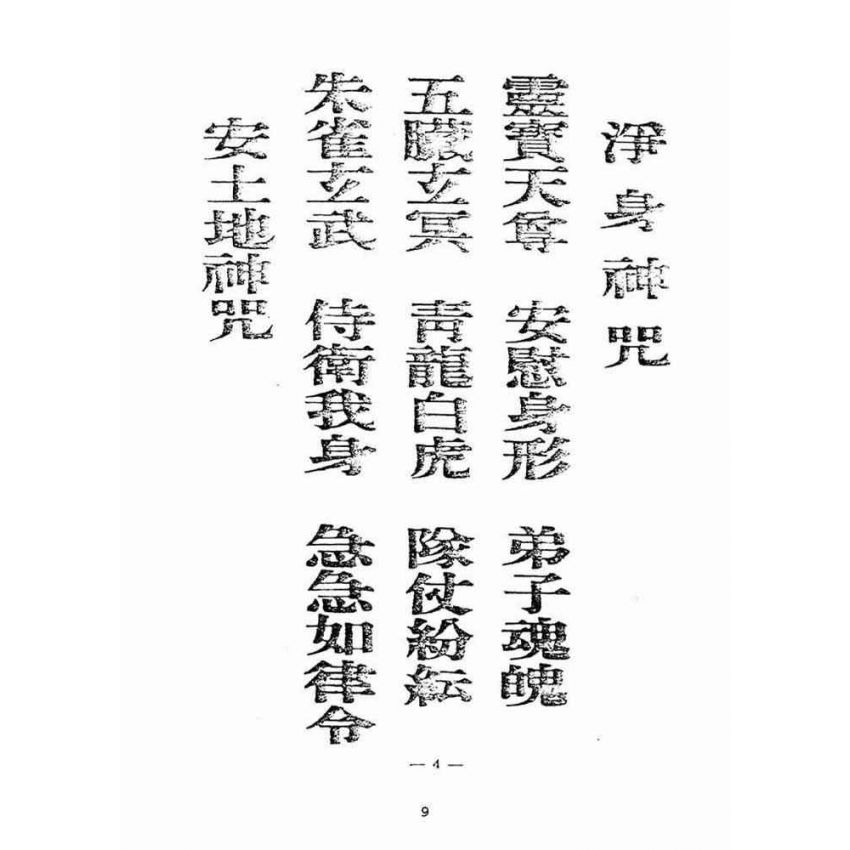 淨身神咒
靈寶天尊 安慰身形 弟子魂魄
五臟玄冥 靑龍白虎 隊仗紛紜
朱雀玄武 侍衛我身 急急如律令
安土地神咒
— 4 —
9